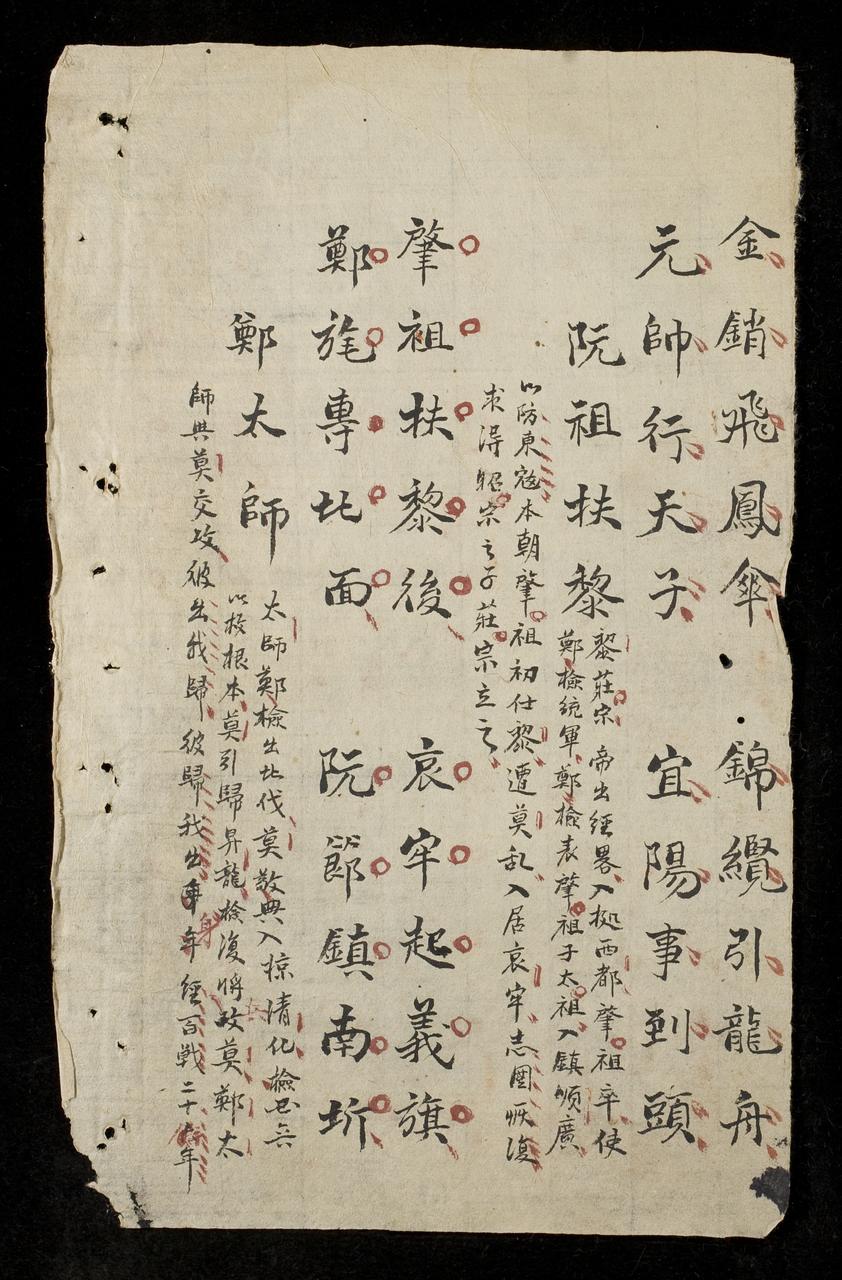 金銷飛鳳傘 錦纜引龍舟
元帥行天子 宜陽事到頭
阮祖扶黎
黎莊宗帝出經畧入拠西都肇祖卒使
鄭檢統軍鄭檢表肇祖子太祖入鎮順廣
以防東寇本朝肇祖初仕黎遭莫乱入居哀牢志圖恢復
求得昭宗之子莊宗立之
肇祖扶黎後 哀牢起義旗
鄭旄專北面 阮節鎮南圻
鄭太師
太師鄭檢出北伐莫敬典入掠清化檢思兵
以救根本莫引歸昇龍檢復將攻莫鄭太
師與莫交攻彼出我歸彼歸我出身年經百戰二十六年